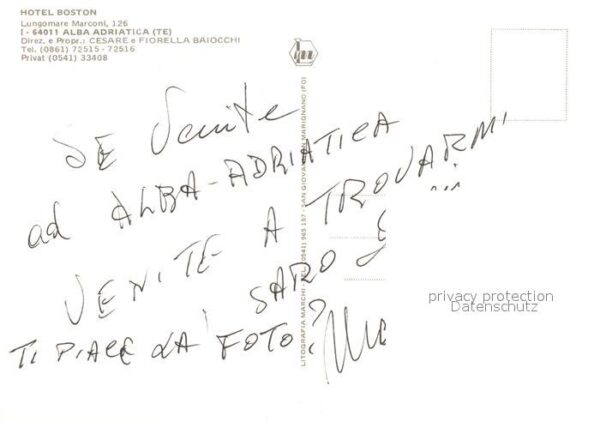 HOTEL BOSTON
Lungomare Marconi, 126
I - 64011 ALBA ADRIATICA (TE)
Direz. e Propr.: CESARE e FIORELLA BAIOCCHI
Tel. (0861) 72515 - 72516
Privat (0541) 33408
SE Venite
ad ALBA-ADRIATICA
VENITE A TROVARMI
SARO
TI PIACE LA FOTO?
LITOGRAFIA MARCHI - TEL. (0541) 963 157 - SAN GIOVANNI IN MARIGNANO (FO)
privacy protection
Datenschutz